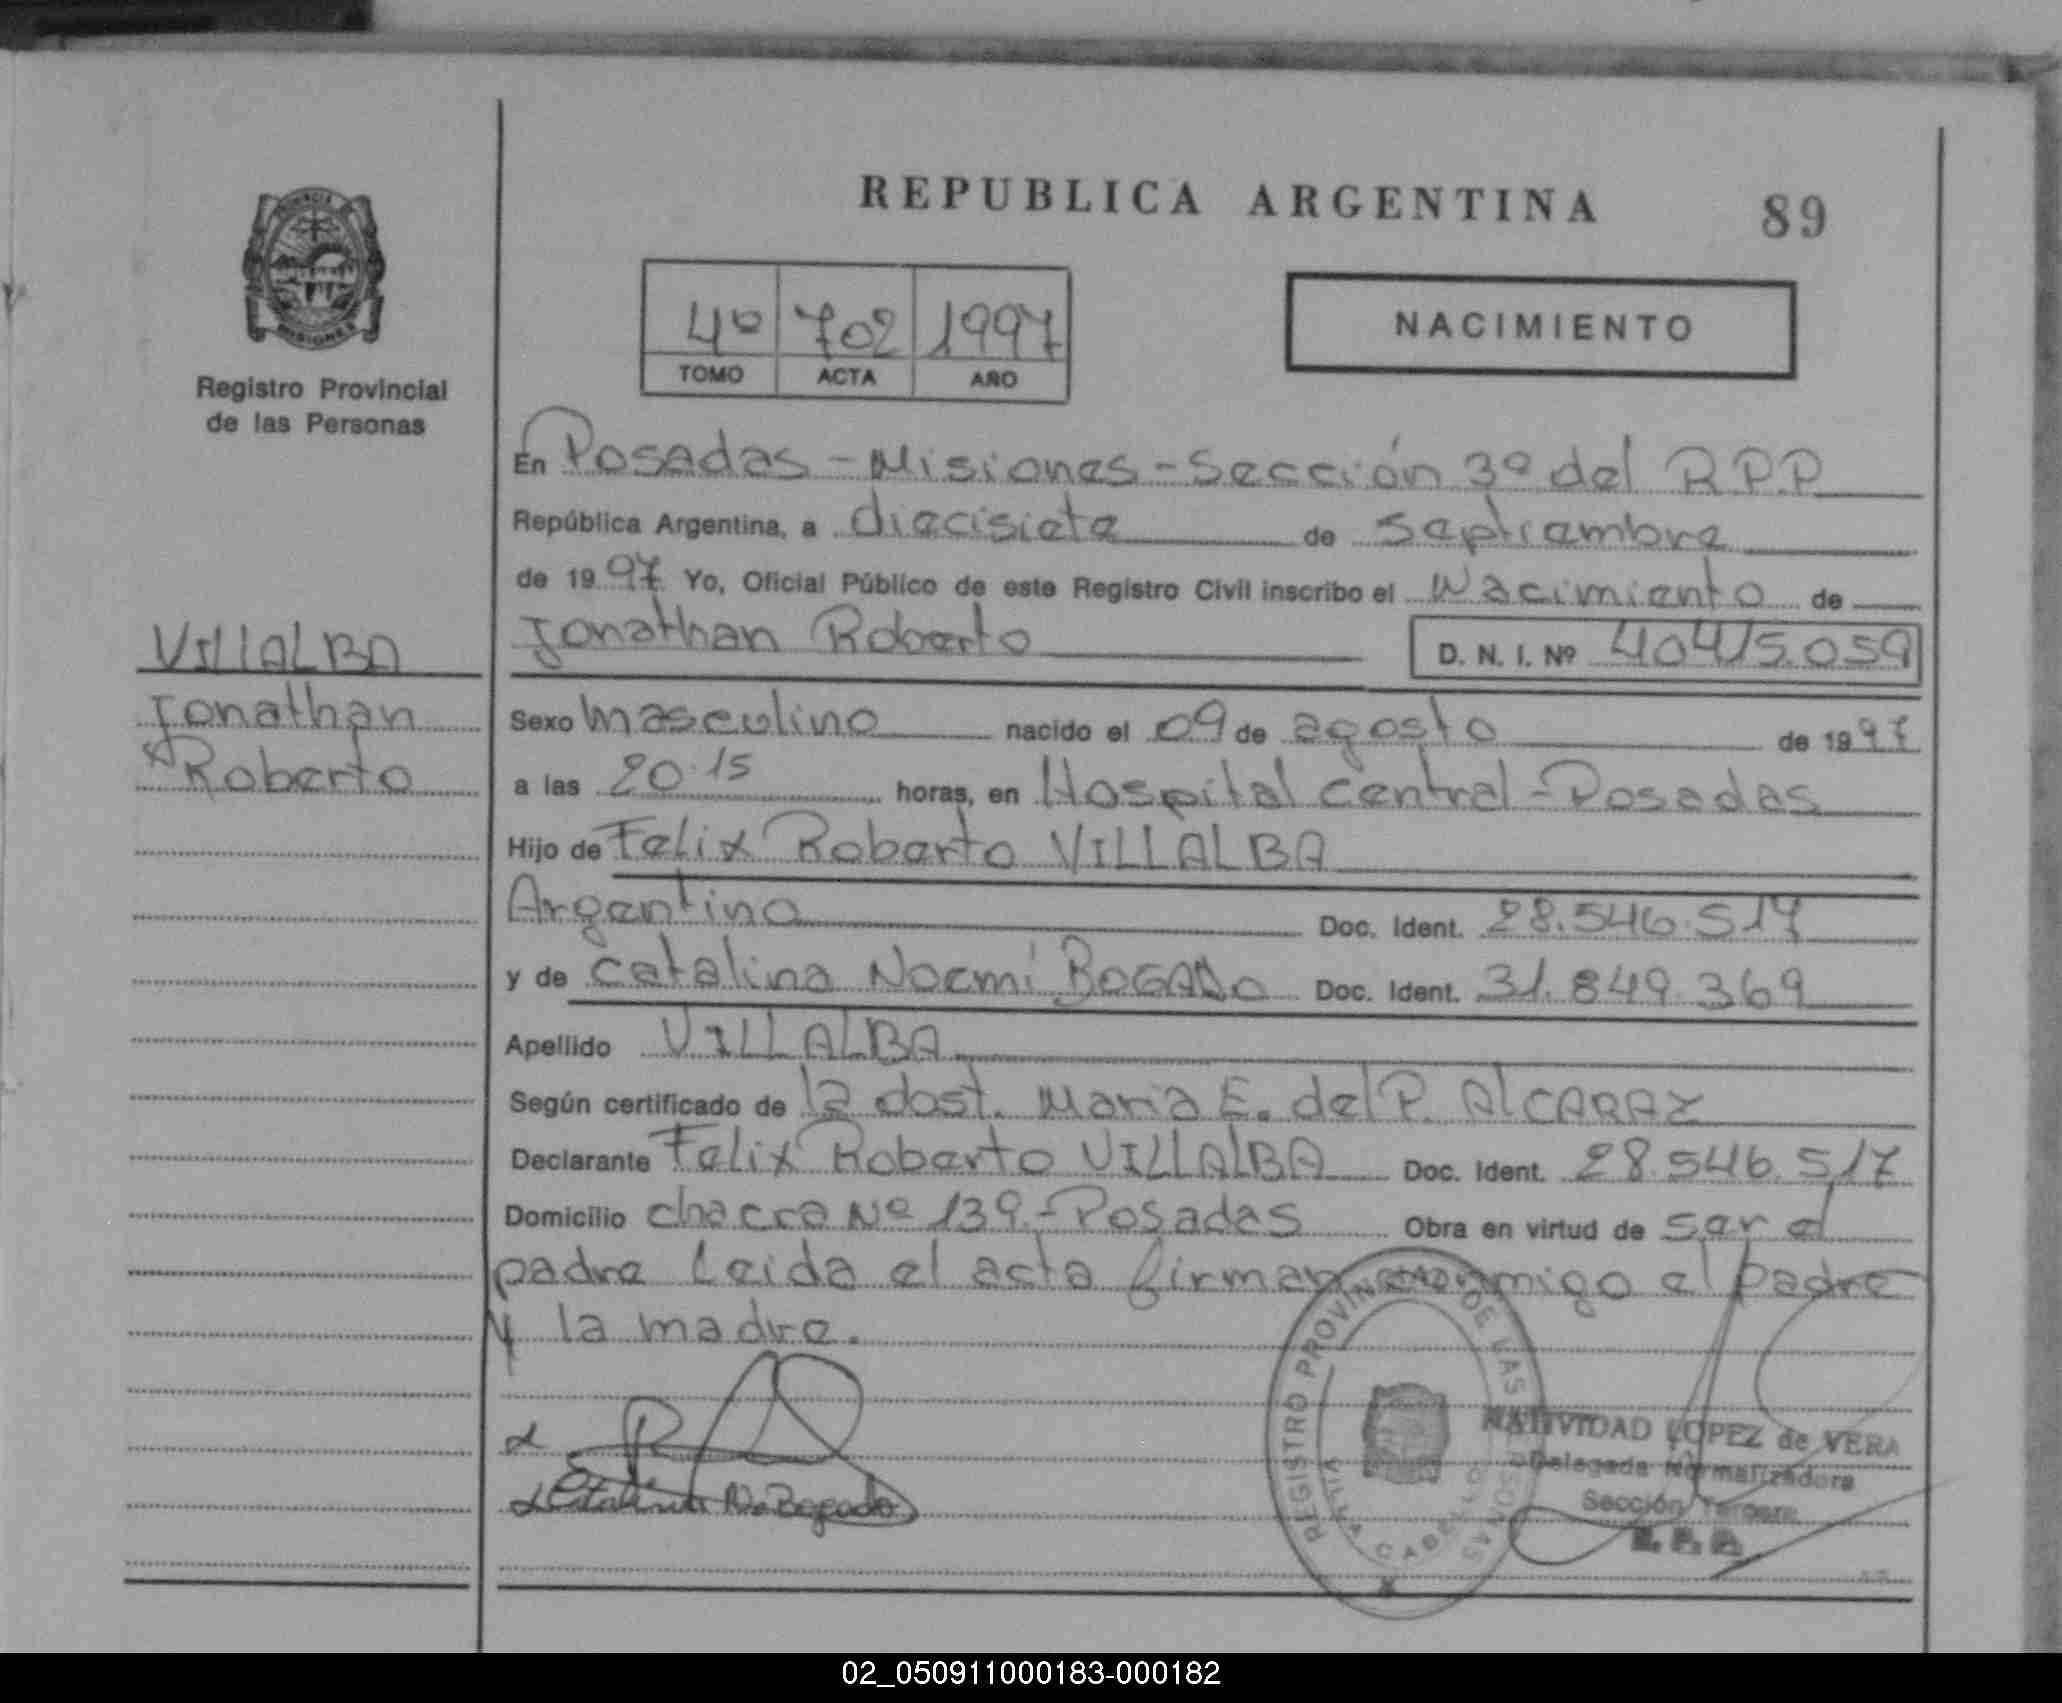 REPUBLICA ARGENTINA
89
MISIONES
Registro Provincial
de las Personas
4º 702 1997
TOMO ACTA AÑO
NACIMIENTO
En Posadas - Misiones - Sección 3º del R.P.P
República Argentina, a diecisiete de septiembre
de 1997 Yo, Oficial Público de este Registro Civil inscribo el Nacimiento de
Jonathan Roberto D. N. I. Nº 40415.059
VIllALBA
Jonathan
Roberto
Sexo masculino nacido el 09 de agosto de 1997
a las 20.15 horas, en Hospital Central - Posadas
Hijo de Felix Roberto VILLALBA
Argentino Doc. Ident. 28.546.517
y de Catalina Noemí BOGADO Doc. Ident. 31.849.369
Apellido VILLALBA
Según certificado de la dost. Maria E. del P. AlCARAZ
Declarante Felix Roberto VILLALBA Doc. Ident. 28.546.517
Domicilio Chacra Nº 139.- Posadas Obra en virtud de ser el
padre Leida el acta firman conmigo el padre
y la madre.
Catalina N. Bogado
REGISTRO PROVINCIAL DE LAS PERSONAS
VILLA CABELLO
NATIVIDAD LOPEZ de VERA
Delegada Normalizadora
Sección Tercera
R.P.P.
02_050911000183-000182